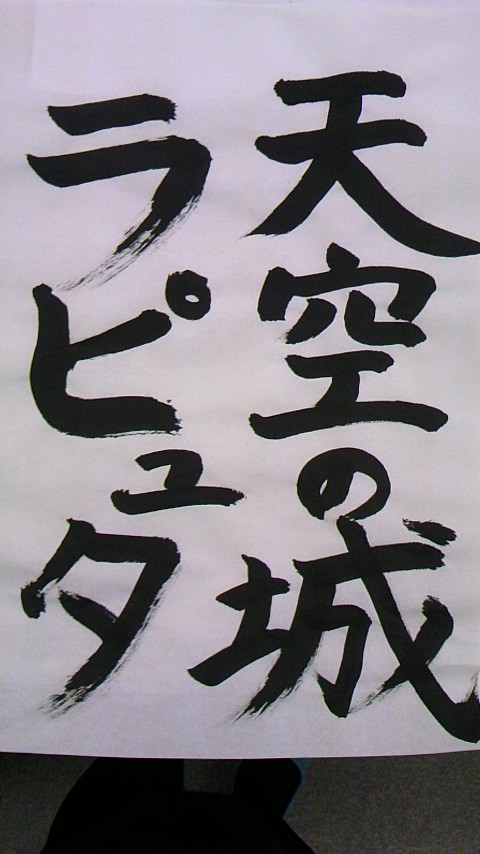 天空の城
ラピュタ